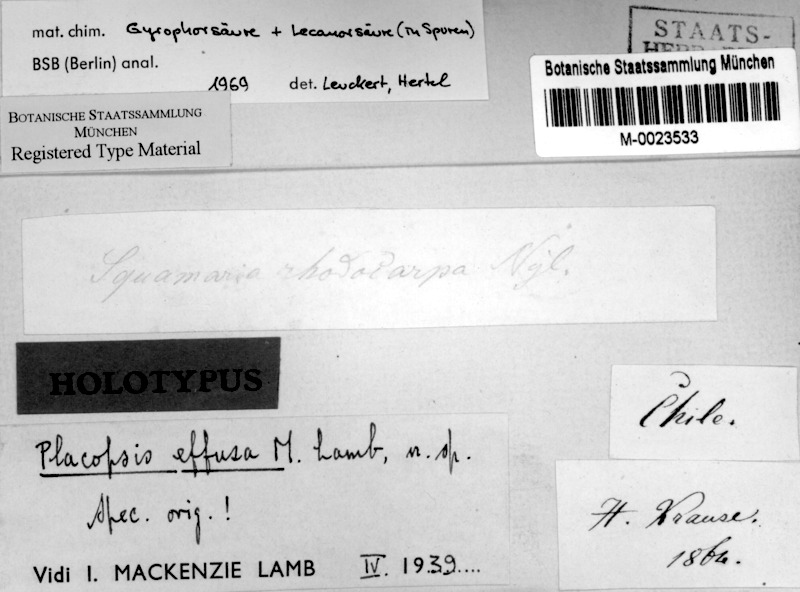 mat. chim. Gyrophorsäure + Lecanorsäure (in Spuren)
BSB (Berlin) anal.
1969 det. Leuckert, Hertel
BOTANISCHE STAATSSAMMLUNG
MÜNCHEN
Registered Type Material
STAATS-
Botanische Staatssammlung München
M-0023533
Squamaria rhodocarpa Nyl.
HOLOTYPUS
Placopsis effusa M. Lamb, n. sp.
spec. orig.!
Vidi I. MACKENZIE LAMB IV. 1939....
Chile.
H. Krause.